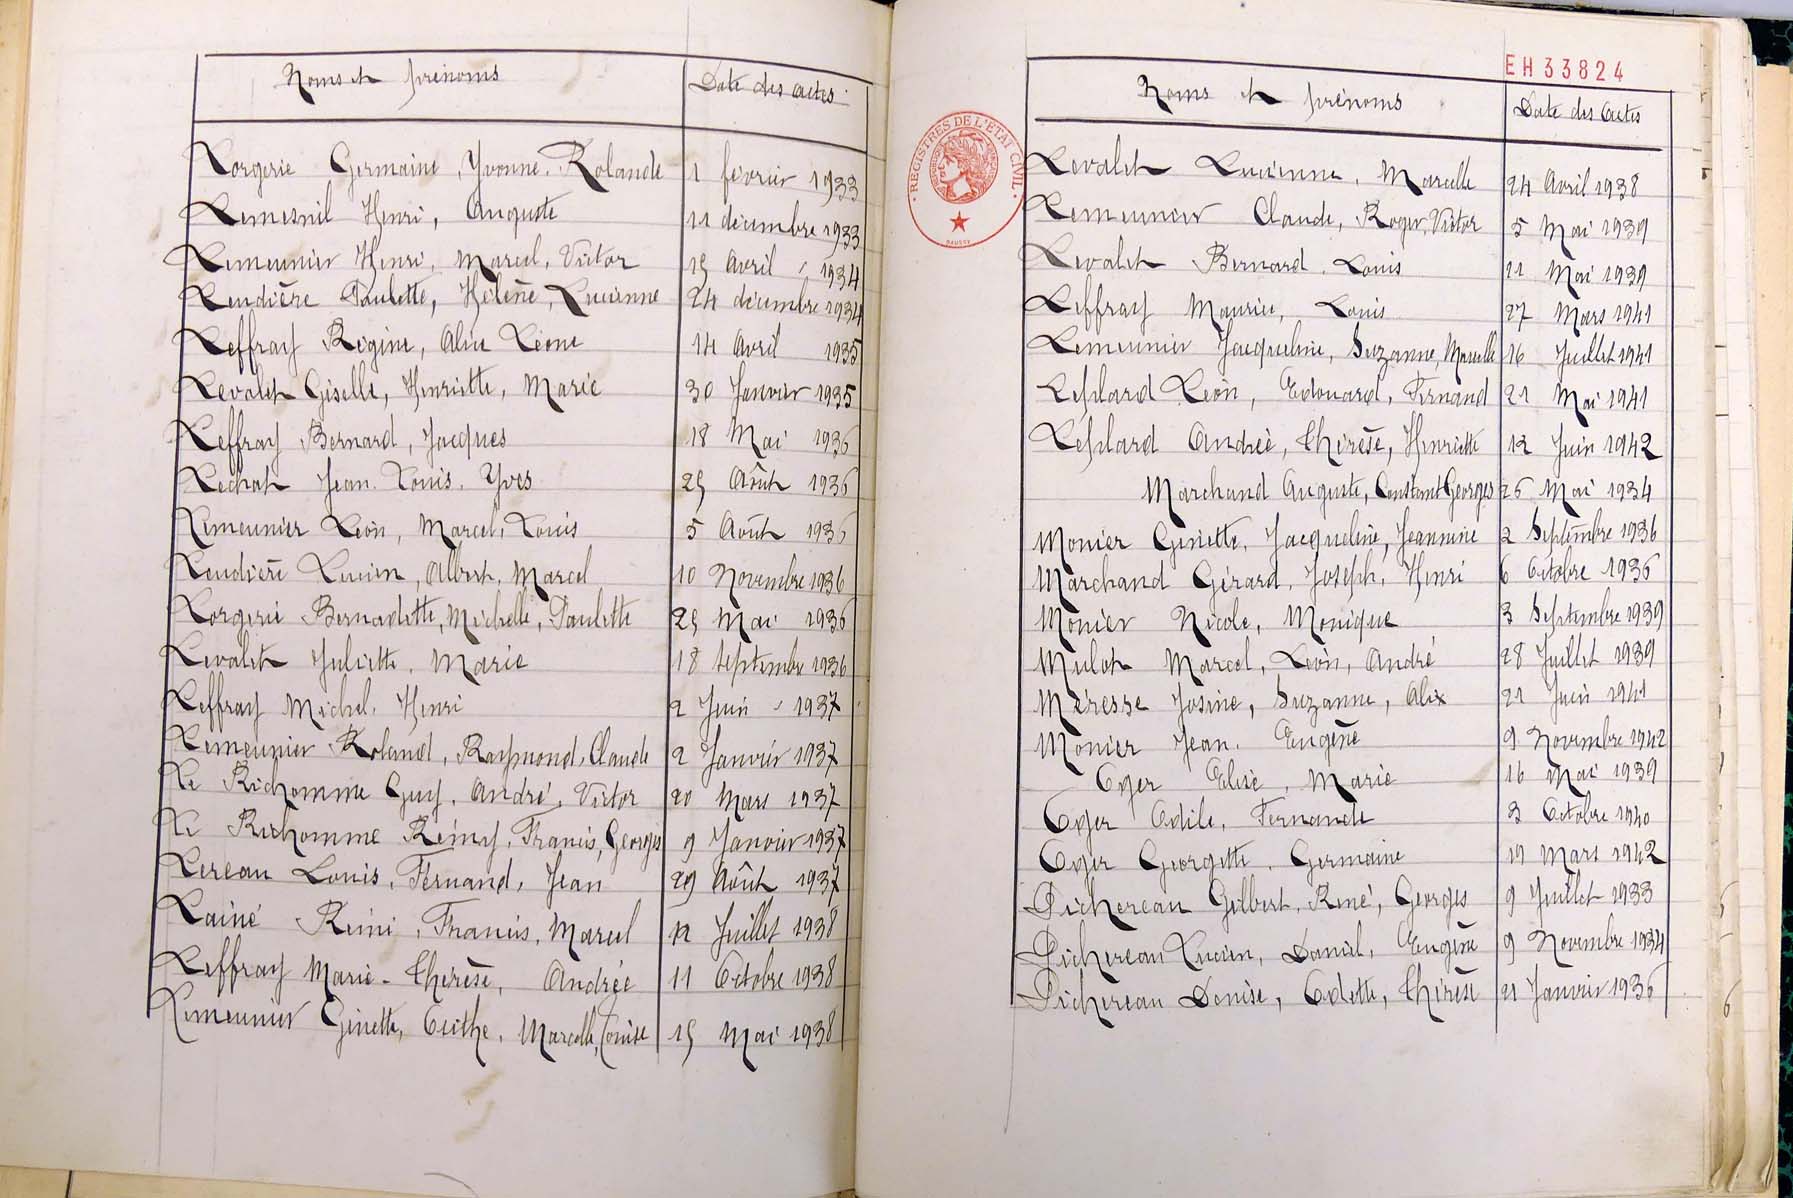 Noms et prénoms Date des actes
Lorgerie Germaine, Yvonne, Rolande 1 février 1933
Lemesnil Henri, Auguste 11 décembre 1933
Lemeunier Henri, Marcel, Victor 15 Avril 1934
Leudière Paulette, Hélène, Lucienne 24 décembre 1934
Leffray Régine, Alice Léone 14 Avril 1935
Levalet Giselle, Henriette, Marie 30 Janvier 1935
Leffray Bernard, Jacques 18 Mai 1936
Lechat Jean, Louis, Yves 25 Août 1936
Lemeunier Léon, Marcel, Louis 5 Août 1936
Leudière Lucien, Albert, Marcel 10 Novembre 1936
Lorgerie Bernadette, Michelle, Paulette 25 Mai 1936
Levalet Juliette, Marie 18 septembre 1936
Leffray Michel, Henri 2 Juin 1937
Lemeunier Roland, Raymond, Claude 2 Janvier 1937
Le Richomme Guy, André, Victor 20 Mars 1937
Le Richomme Rémy, Francis, Georges 9 Janvier 1937
Lereau Louis, Fernand, Jean 29 Août 1937
Lainé Rémi, Francis, Marcel 12 Juillet 1938
Leffray Marie-Thérèse, Andrée 11 Octobre 1938
Lemeunier Ginette, Marcelle, Louise 15 Mai 1938
EH33824
REGISTRES DE L'ÉTAT CIVIL
Noms et prénoms Date des Actes
Levalet Lucienne, Marcelle 24 Avril 1938
Lemeunier Claude, Roger, Victor 5 Mai 1939
Levalet Bernard, Louis 11 Mai 1939
Leffray Maurice, Louis 27 Mars 1941
Lemeunier Jacqueline, Suzanne, Marcelle 16 Juillet 1941
Leplard Léon, Edouard, Fernand 21 Mai 1941
Leplard Andrée, Thérèse, Henriette 12 Juin 1942
Marchand Auguste, Constant Georges 26 Mai 1934
Monier Ginette, Jacqueline, Jeannine 2 Septembre 1936
Marchand Gérard, Joseph, Henri 6 Octobre 1936
Monier Nicole, Monique 3 Septembre 1939
Mulot Marcel, Léon, André 28 Juillet 1939
Méresse Josine, Suzanne, Alix 21 Juin 1941
Monier Jean, Eugène 9 Novembre 1942
Oger Elise, Marie 16 Mai 1939
Oger Odile, Fernande 3 Octobre 1940
Oger Georgette, Germaine 19 Mars 1942
Pichereau Gilbert, René, Georges 9 Juillet 1933
Pichereau Lucien, Daniel, Eugène 9 Novembre 1934
Pichereau Denise, Odette, Thérèse 21 Janvier 1936